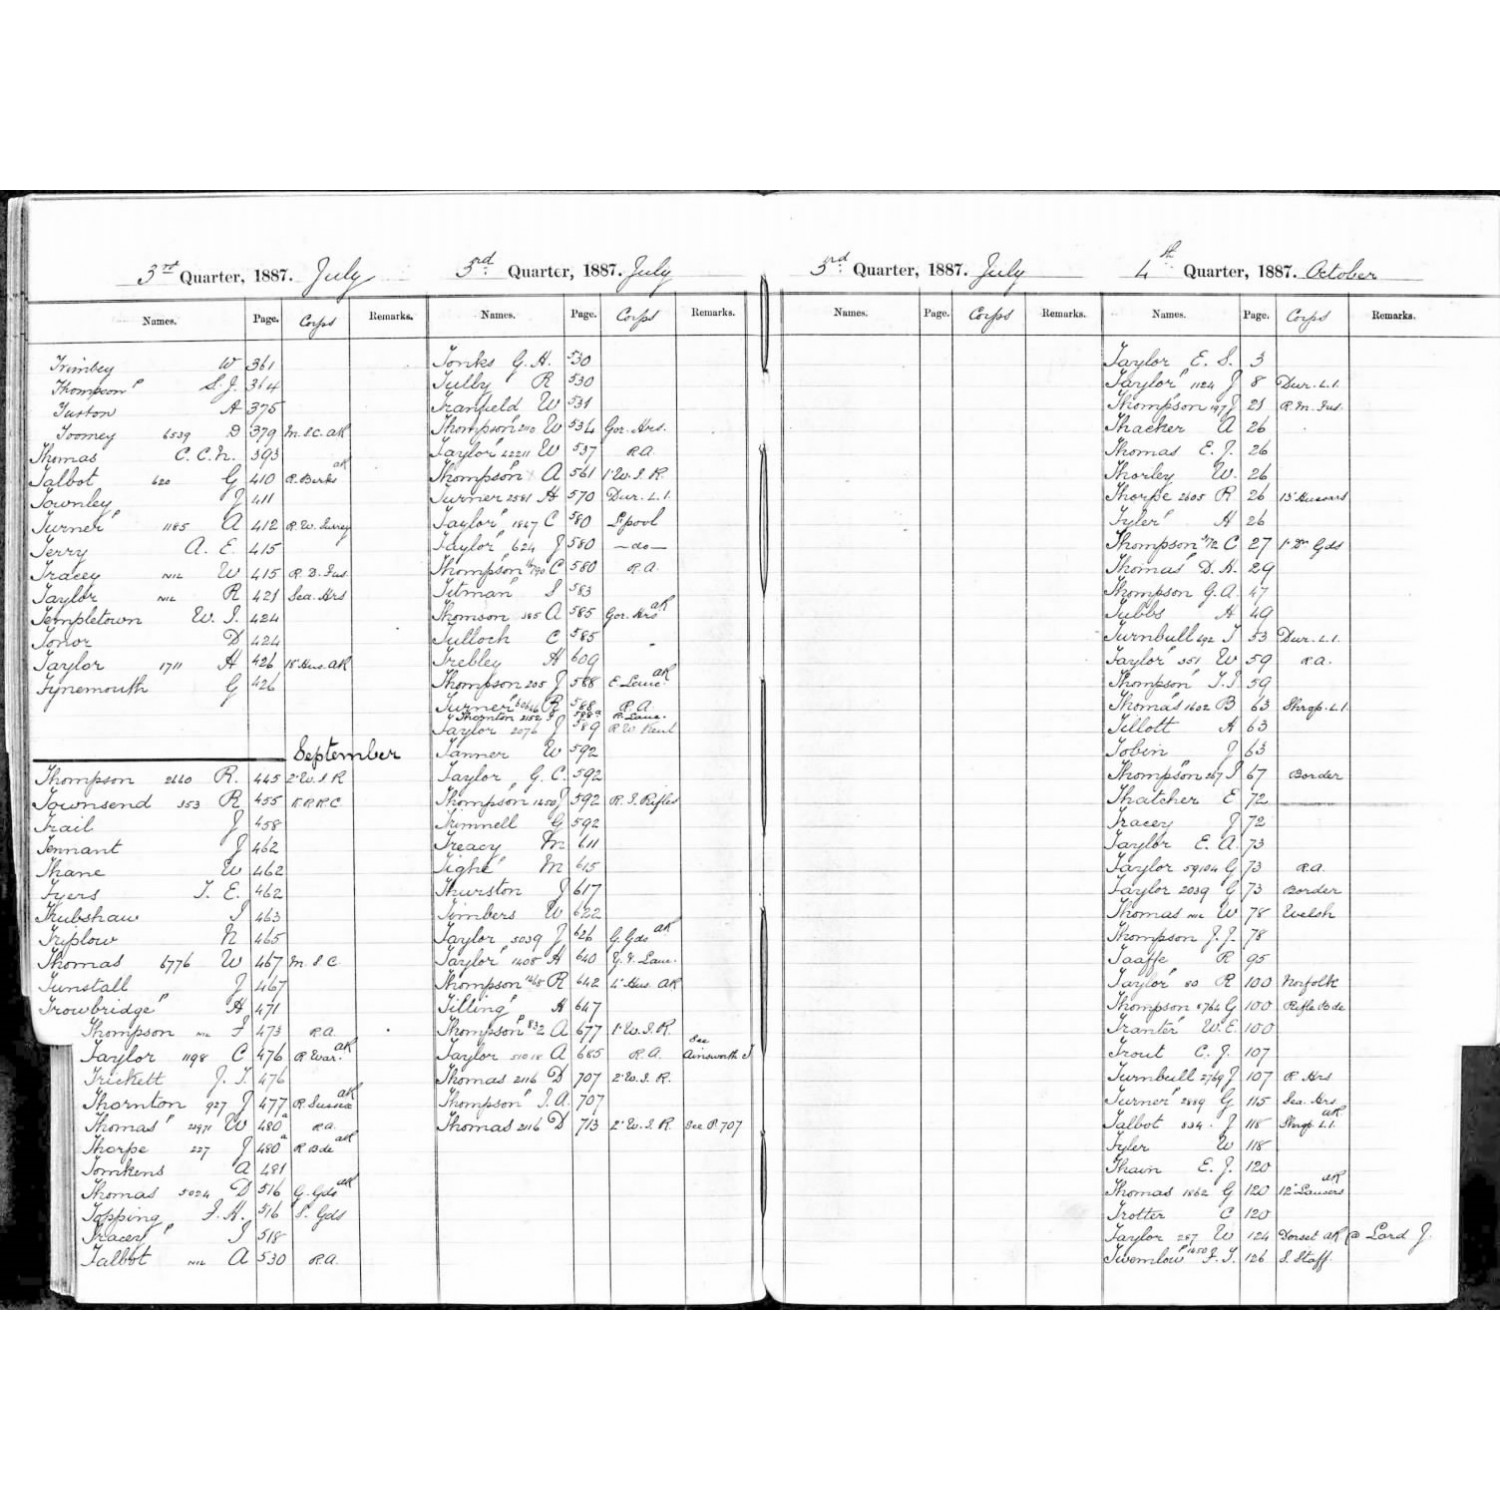 3rd Quarter, 1887. July
Names. Page. Corps Remarks.
Trimbey W 361
Thompson S.J. 364
Tuston A 375
Toomey 6539 D 379 M.S.C. AR
Thomas C.C.N. 393
Talbot 620 G 410 R. Berks AR
Townley J 411
Turner 1185 A 412 R.W. Surrey
Terry A. E. 415
Tracey NIL W 415 R. D. Fus.
Taylor NIL R 421 Sea. Hrs
Templetown W. T. 424
Tonor D 424
Taylor 1711 H 426 18 Hus. AR
Tynemouth G 426
September
Thompson 2660 R. 445 2 W.I.R
Townsend 353 R 455 K.R.R.C
Trail J 458
Tennant J 462
Thane W 462
Tyers T. E. 462
Thubshaw J 463
Triplow N 465
Thomas 6776 W 467 M.S.C.
Tunstall J 467
Trowbridge H 471
Thompson NIL F 473 R.A.
Taylor 1198 C 476 R War. AR
Trickett J. T. 476
Thornton 927 J 477 R. Sussex AR
Thomas W 480a R.A.
Thorpe 227 J 480a R Bde AR
Tomkens A 481
Thomas 5024 D 516 G. Gds AR
Topping F. H. 516 S. Gds
Tracey J 518
Talbot NIL A 530 R.A.
3rd Quarter, 1887. July
Names. Page. Corps Remarks.
Tonks G. H. 530
Tulby R 530
Tranfield W 531
Thompson 210 W 534 Gor. Hrs.
Taylor 42211 W 537 R.A
Thompson A 561 1 W.I.R
Turner 2581 H 570 Dur. L.I.
Taylor 1827 C 580 L'pool
Taylor 624 J 580 —do—
Thompson C 580 R.A.
Titman S 583
Thomson 185 A 585 Gor. Hrs AR
Tulloch C 585
Trebley H 609
Thompson 205 J 588 E Lanc. AR
Turner R 588 R.A.
Thornton 2152 F 588a E. Lanc.
Taylor 2076 J 589 R.W Kent
Tanner W 592
Taylor G. C. 592
Thompson 1450 J 592 R. I. Rifles
Trimnell G 592
Treacy M 611
Tighe M 615
Thurston J 617
Timbers W 622
Taylor 5039 J 626 G. Gds AR
Taylor 1408 H 640 Y. & Lanc.
Thompson 1268 R 642 4 Hus. AR
Tilling H 647
Thompson 832 A 677 1 W.I.R.
Taylor 51018 A 685 R.A. See Ainsworth J
Thomas 2116 D 707 2 W.I.R.
Thompson J. A. 707
Thomas 2116 D 713 2 W.I.R See P. 707
3rd Quarter, 1887. July
Names. Page. Corps Remarks.
4th Quarter, 1887. October
Names. Page. Corps Remarks.
Taylor E. S. 3
Taylor 1124 J 8 Dur. L.I.
Thompson 197 J 21 R.M. Fus.
Thacker A 26
Thomas E. J. 26
Thorley W. 26
Thorpe 2605 R 26 13 Hussars
Tyler H 26
Thompson C 27 1 Dn Gds
Thomas D. H. 29
Thompson G.A. 47
Tubbs H 49
Turnbull 692 T 53 Dur. L.I.
Taylor 351 W 59 R.A.
Thompson T.J 59
Thomas 1602 B 63 Shrop. L.I.
Tillott H 63
Tobin J 63
Thompson 267 J 67 Border
Thatcher E 72
Tracey J 72
Taylor E. A. 73
Taylor 59104 G 73 R.A.
Taylor 2039 G 73 Border
Thomas NIL W 78 Welsh
Thompson J. J. 78
Taaffe R 95
Taylor 80 R 100 Norfolk
Thompson 8762 G 100 Rifle Bde
Tranter W. E. 100
Trout C. J. 107
Turnbull 2769 J 107 R. Hrs
Turner 2889 G 115 Sea. Hrs
Talbot 834 J 118 Shrop. L.I. AR
Tyler W 118
Thain E. J. 120
Thomas 1862 G 120 12 Lancers AR
Trotter C 120
Taylor 287 W 124 Dorset AR @ Lard J.
Twemlow 1450 F. T. 126 S. Staff.